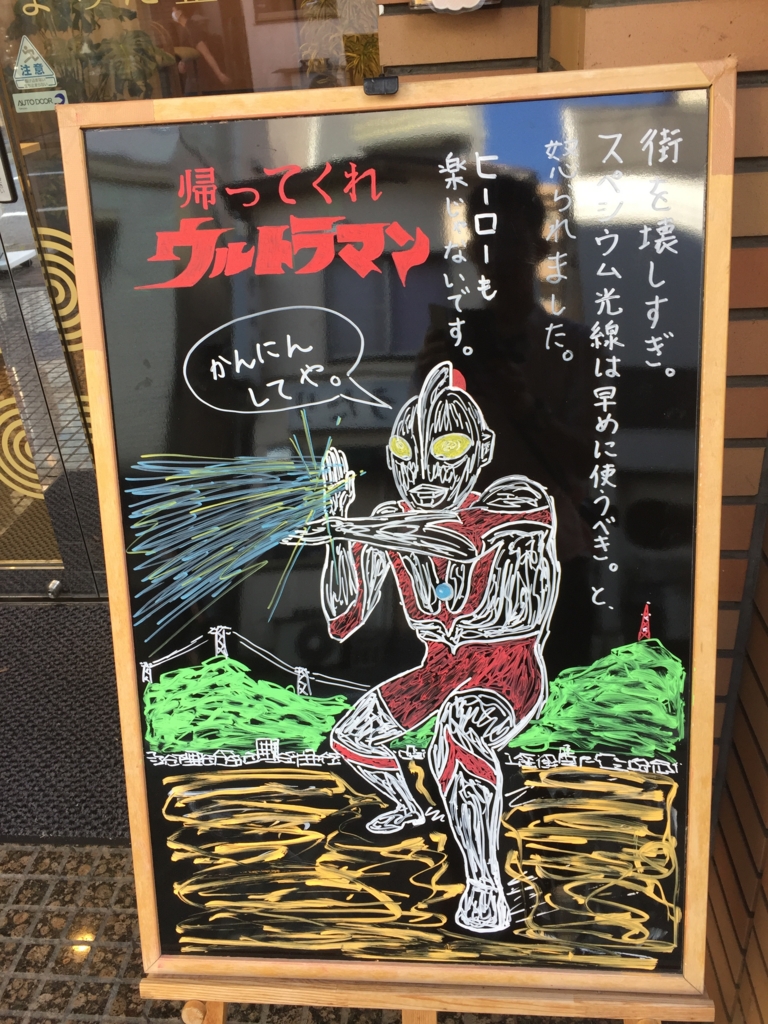 注意
AUTO DOOR
街を壊しすぎ。
スペシウム光線は早めに使うべき。と、
怒られました。
ヒーローも
楽じゃないです。
帰ってくれ
ウルトラマン
かんにん
してや。